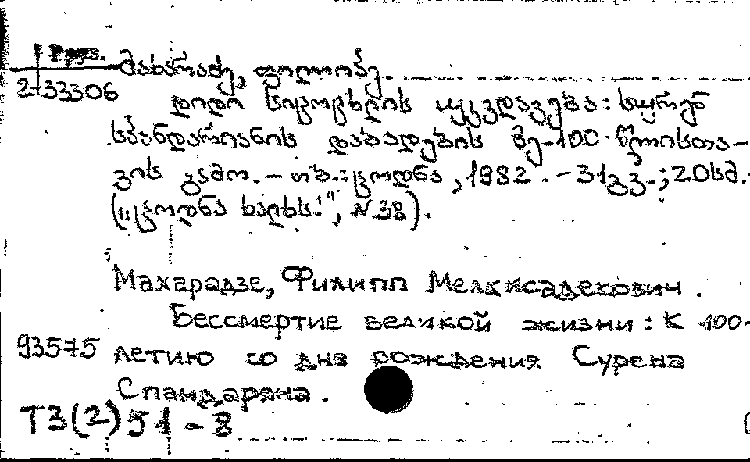 Груз.
2-33306
მახარაძე, ფილიპე.
დიდი სიცოცხლის უკვდავება: სურენ
სპანდარიანის დაბადების მე-100 წლისთა-
ვის გამო. - თბ.: ცოდნა, 1982. - 31გვ.; 20სმ.
(„ცოდნა ხალხს!", N 38).
Махарадзе, Филипп Мелхиседекович.
Бессмертие великой жизни: К 100-
93575 летию со дня рождения Сурена
Спандаряна.
Т3(2)51-8